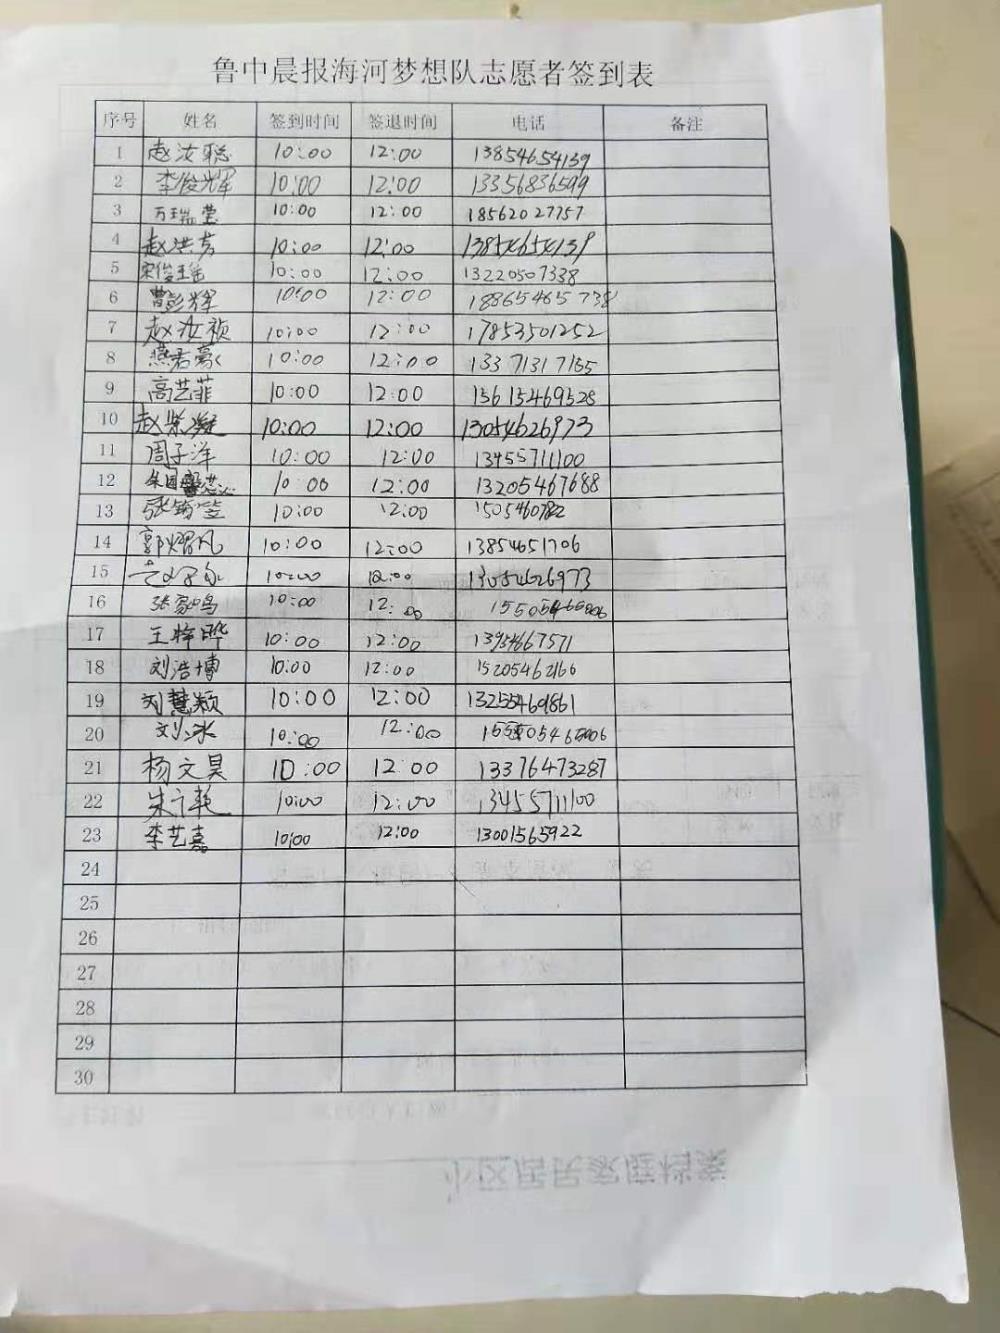 鲁中晨报海河梦想队志愿者签到表
序号 姓名 签到时间 签退时间 电话 备注
1 赵汝聪 10:00 12:00 13854654139
2 李俊辉 10:00 12:00 13356836599
3 万瑞莹 10:00 12:00 18562027757
4 赵洪芳 10:00 12:00 13854654139
5 宋俊瑶 10:00 12:00 13220507338
6 曹彭辉 10:00 12:00 18865465738
7 赵汝祯 10:00 12:00 17853501252
8 燕君豪 10:00 12:00 13371317155
9 高艺菲 10:00 12:00 15615469528
10 赵紫凝 10:00 12:00 13054626973
11 周子洋 10:00 12:00 13455711100
12 10:00 12:00 13205467688
13 10:00 12:00
14 郭熠凡 10:00 12:00 13854651706
15 10:00 12:00 13054626973
16 张家鸣 10:00 12:00 15505465006
17 王梓晔 10:00 12:00 13954667571
18 刘浩博 10:00 12:00 15205462166
19 刘慧颖 10:00 12:00 13255469861
20 刘冰 10:00 12:00
21 杨文昊 10:00 12:00 13376473287
22 10:00 12:00 13455711100
23 李艺嘉 10:00 12:00 13001565922
24
25
26
27
28
29
30
小区居民家庭档案